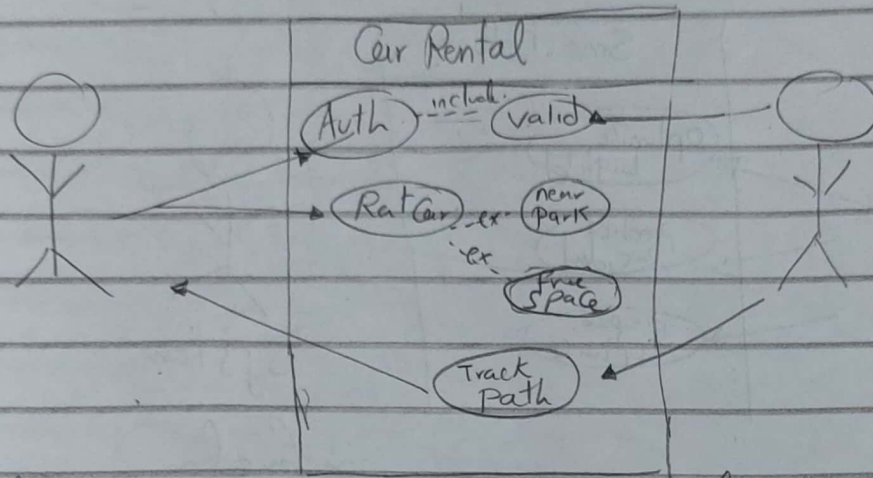 Car Rental
Auth
include.
valid
Rat Car
ex
near
park
ex
free
space
Track
path